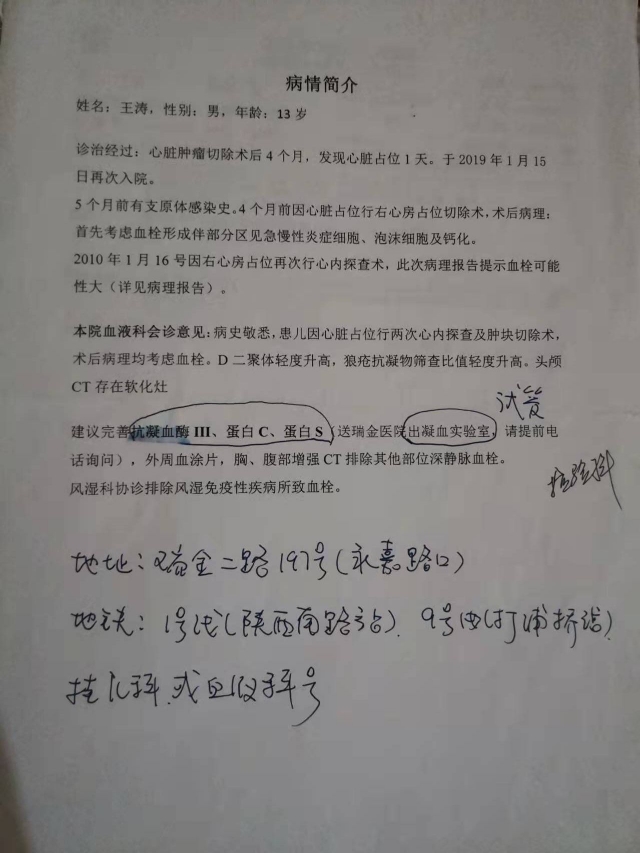 病情简介
姓名：王涛，性别：男，年龄：13 岁
诊治经过：心脏肿瘤切除术后 4 个月，发现心脏占位 1 天。于 2019 年 1 月 15
日再次入院。
5 个月前有支原体感染史。4 个月前因心脏占位行右心房占位切除术，术后病理：
首先考虑血栓形成伴部分区见急慢性炎症细胞、泡沫细胞及钙化。
2010 年 1 月 16 号因右心房占位再次行心内探查术，此次病理报告提示血栓可能
性大（详见病理报告）。
本院血液科会诊意见：病史敬悉，患儿因心脏占位行两次心内探查及肿块切除术，
术后病理均考虑血栓。D 二聚体轻度升高，狼疮抗凝物筛查比值轻度升高。头颅
CT 存在软化灶
试管
建议完善抗凝血酶 III、蛋白 C、蛋白 S（送瑞金医院出凝血实验室，请提前电
话询问），外周血涂片，胸、腹部增强 CT 排除其他部位深静脉血栓。
检验科
风湿科协诊排除风湿免疫性疾病所致血栓。
地址：瑞金二路197号（永嘉路口）
地铁：1号线（陕西南路站）、9号线（打浦桥站）
挂儿科、或血液科号